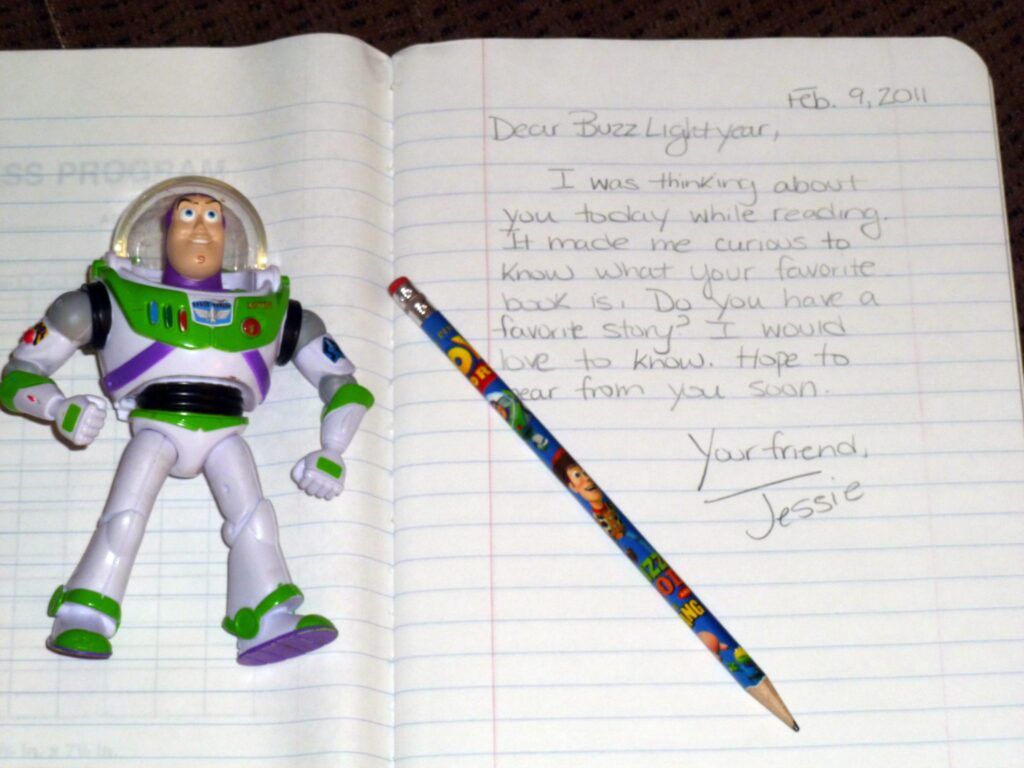 Feb. 9, 2011
Dear Buzz Lightyear,
I was thinking about
you today while reading.
It made me curious to
know what your favorite
book is. Do you have a
favorite story? I would
love to know. Hope to
hear from you soon.
Your friend,
Jessie
SS PROGRAM